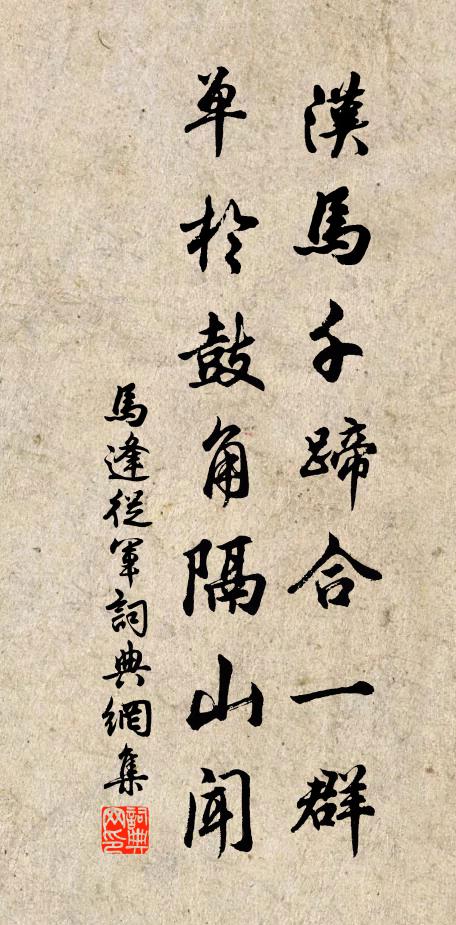 漢馬千蹄合一群
單於鼓角隔山聞
馬逢從軍詞典網集
詞典網印